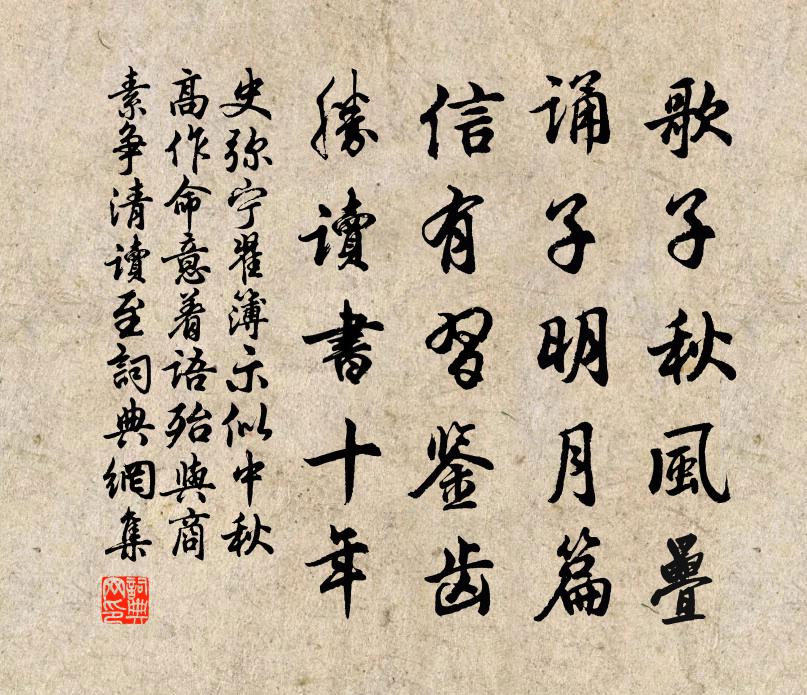 歌子秋風疊
誦子明月篇
信有習鑿齿
勝讀書十年
史弥宁翟簿示似中秋
高作命意着语殆與商
素争清讀至詞典網集
詞典网印